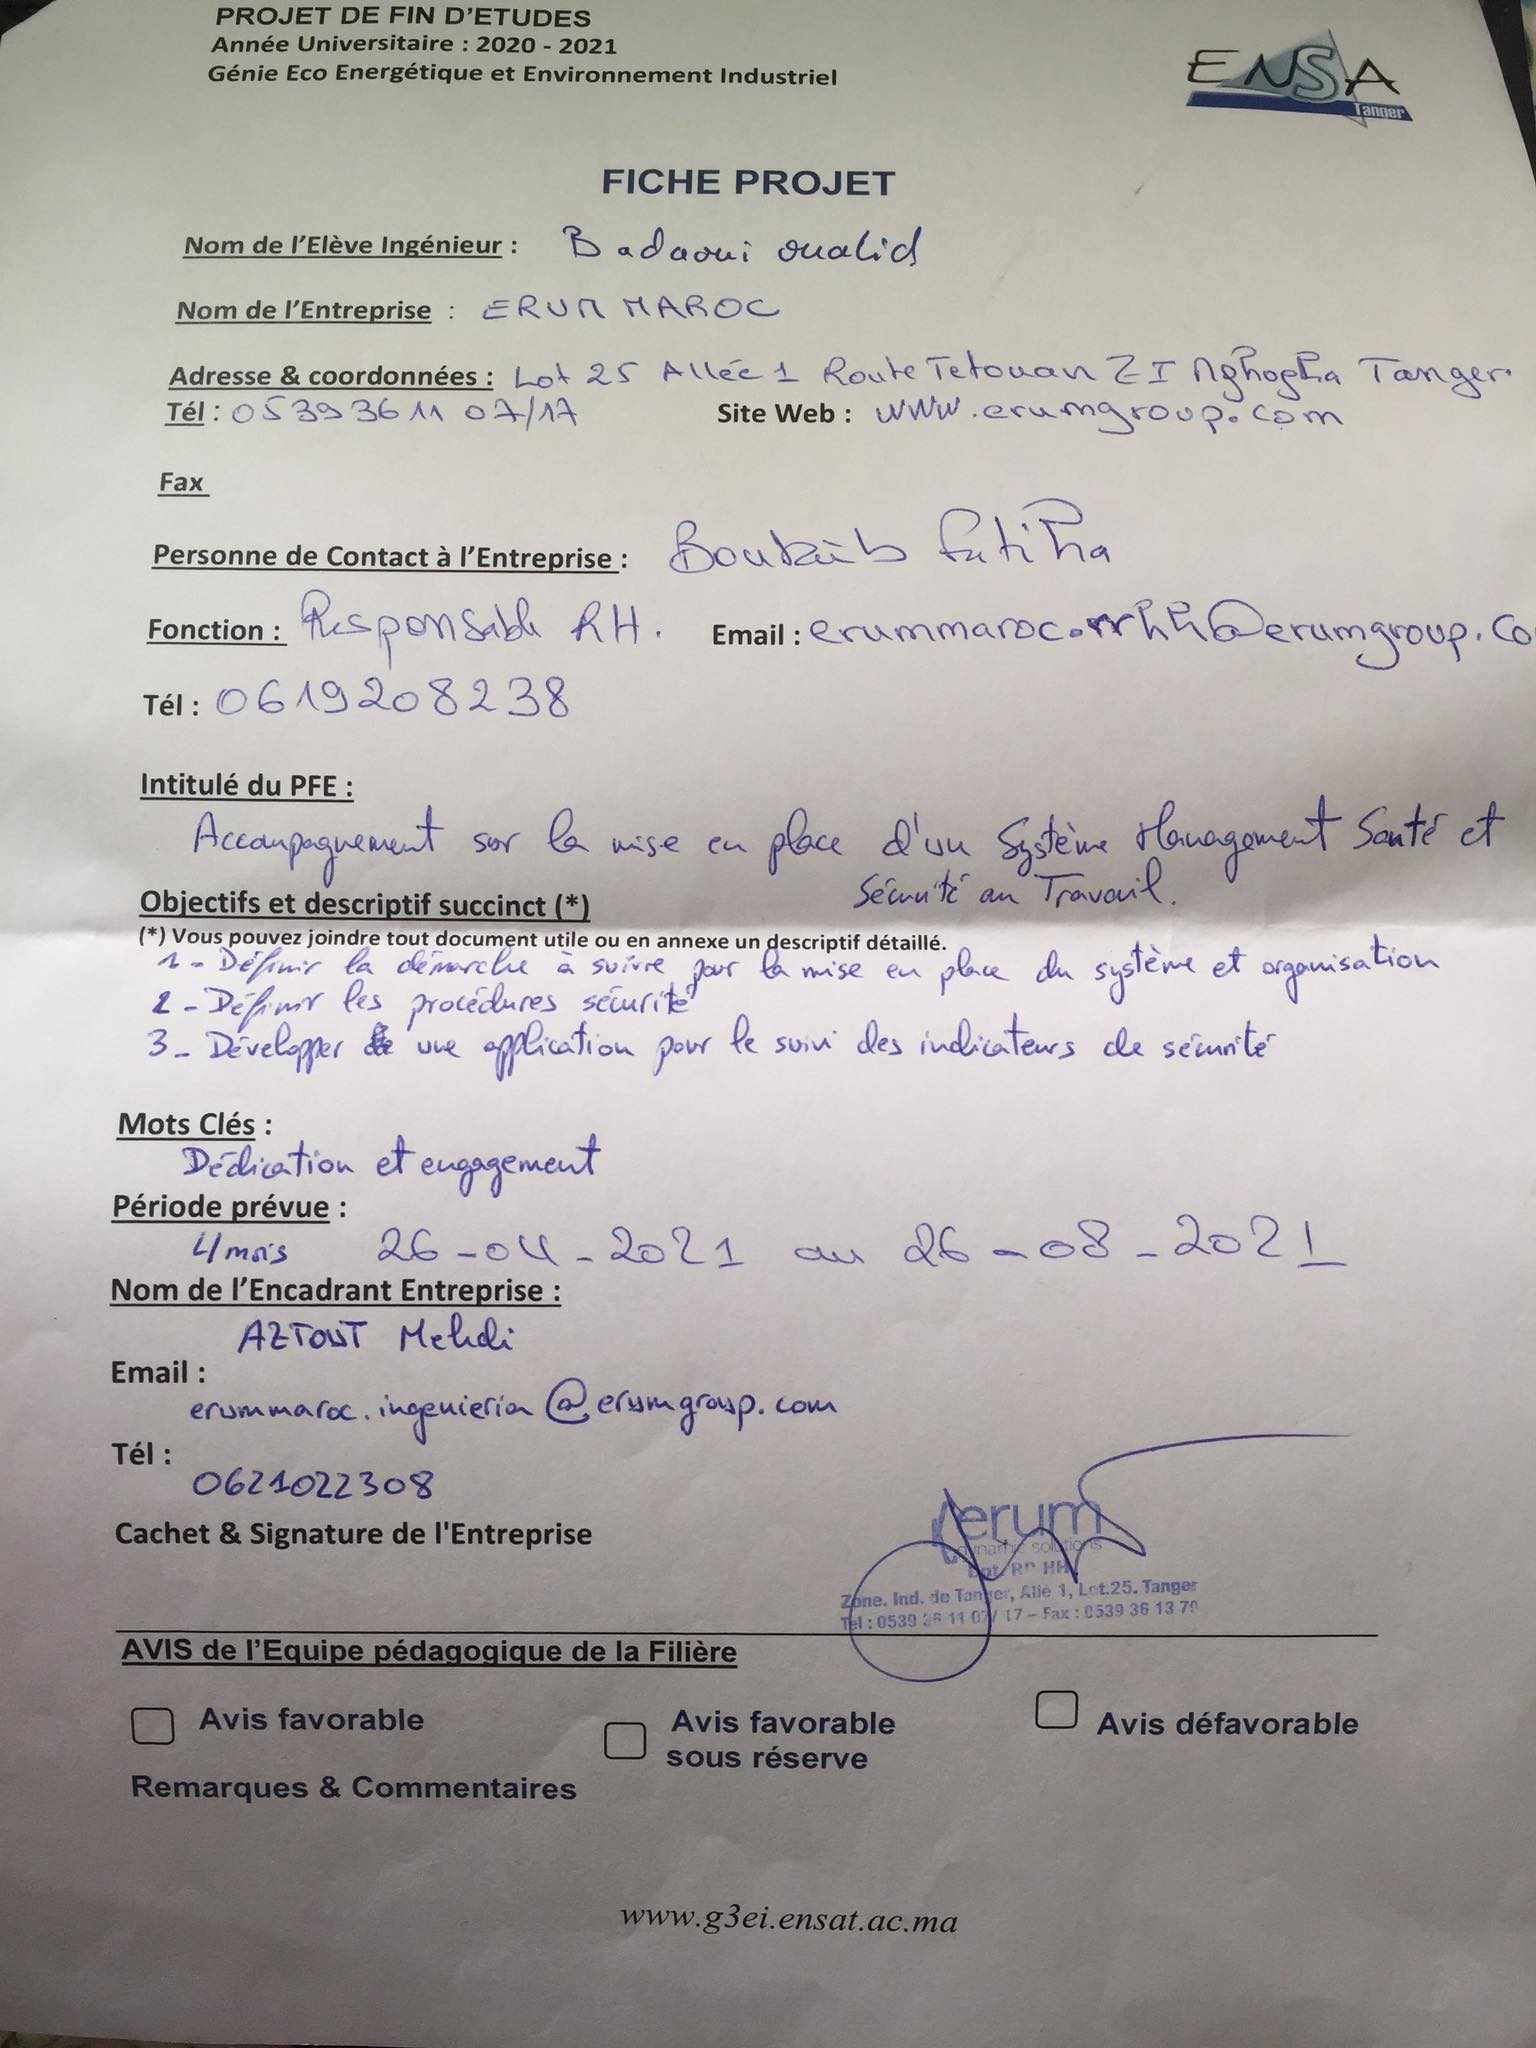 PROJET DE FIN D'ETUDES
Année Universitaire : 2020 - 2021
Génie Eco Energétique et Environnement Industriel
ENSA
Tanger
FICHE PROJET
Nom de l'Elève Ingénieur : Badaoui oualid
Nom de l'Entreprise : ERUM MAROC
Adresse & coordonnées : Lot 25 Allée 1 Route Tetouan ZI Mghogha Tanger.
Tél : 05393611 07/17 Site Web : www.erumgroup.com
Fax
Personne de Contact à l'Entreprise : Fatiha
Fonction : Responsable RH. Email : erummaroc.rrhh@erumgroup.co
Tél : 0619208238
Intitulé du PFE :
Accompagnement sur la mise en place d'un Système Management Santé et
Sécurité au Travail.
Objectifs et descriptif succinct (*)
(*) Vous pouvez joindre tout document utile ou en annexe un descriptif détaillé.
1 - Définir la démarche à suivre pour la mise en place du système et organisation
2 - Définir les procédures sécurité
3 - Développer une application pour le suivi des indicateurs de sécurité
Mots Clés :
Dédication et engagement
Période prévue :
4 mois 26-04-2021 au 26-08-2021
Nom de l'Encadrant Entreprise :
AZTOUT Mehdi
Email :
erummaroc.ingenieria@erumgroup.com
Tél :
0621022308
Cachet & Signature de l'Entreprise
erum
dynamic solutions
Zone. Ind. de Tanger, Alle 1, Lot.25. Tanger
Tel : 0539 36 11 07/ 17 – Fax : 0539 36 13 70
AVIS de l'Equipe pédagogique de la Filière
Avis favorable
Avis favorable
sous réserve
Avis défavorable
Remarques & Commentaires
www.g3ei.ensat.ac.ma